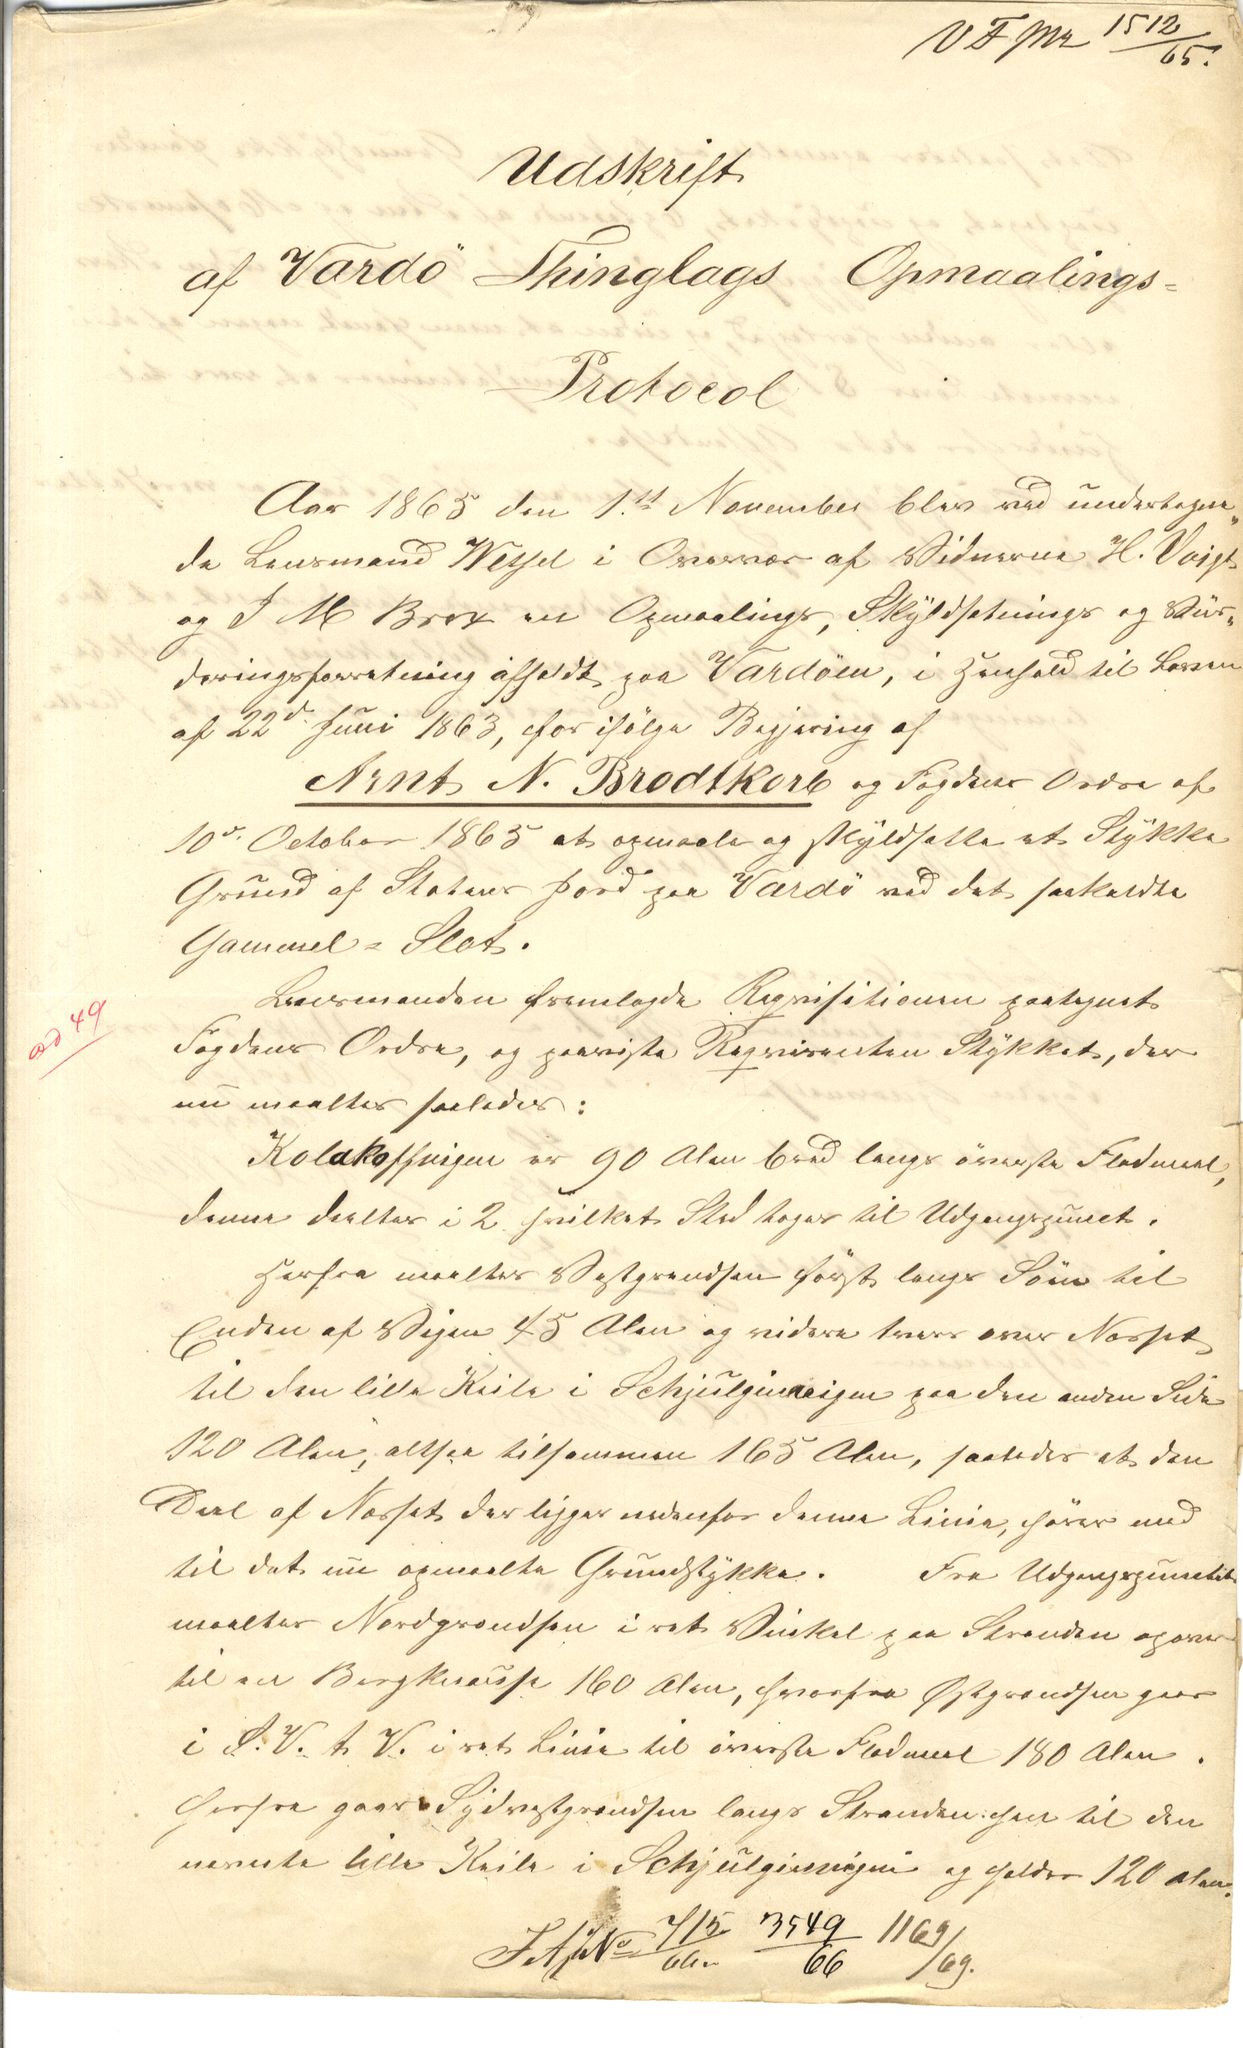 V F No 1512/65.
Udskrift
af Vardö Thinglags Opmaalings=
Protocol
Aar 1865 den 1.st November blev ved undertegne„
de Lensmand Wessel i Overvær af Vidnerne H. Voigt
og J M Brox en Opmaalings, Skyldsætnings og Vür„
deringsforretning afholdt paa Vardöen, i Henhold til Loven
af 22d Juni 1863, for ifölge Begjæring af
Arnt N. Brodtkorb og Fogdens Ordre af
10d October 1865 at opmaale og skyldsætte et Stykke
Grund af Statens Jord paa Vardö ved det saakaldte
Gammel=Slot.
Lensmanden fremlagde Reqvisitionen paategnet
ad 49
Fogdens Ordre, og paaviste Reqvirenten Stykket, der
nu maaltes saaledes:
Kolakoffvigen er 90 Alen bred langs överste Flodmaal,
denne deeltes i 2 hvilket Sted toges til Udgangspunct.
Herfra maaltes Vestgrændsen först langs Söen til
Enden af Vigen 45 Alen og videre tvers over Næsset
til den lille Keile i Schjulginvigen paa den anden Side
120 Alen, altsaa tilsammen 165 Alen, saaledes at den
Deel af Næsset der ligger nedenfor denne Linie, hörer med
til det nu opmaalte Grundstykke. Fra Udgangspunctet
maaltes Nordgrændsen i ret Vinkel paa Stranden opover
til en Bergknause 160 Alen, hvorfra Östgrændsen gaar
i S. V. t V. i ret Linie til överste Flodmaal 180 Alen.
Herfra gaar Sydvestgrændsen langs Stranden hen til den
nævnte lille Keile i Schjulginvigen og holder 120 Alen.
715/66. 3549/66 1169/69.